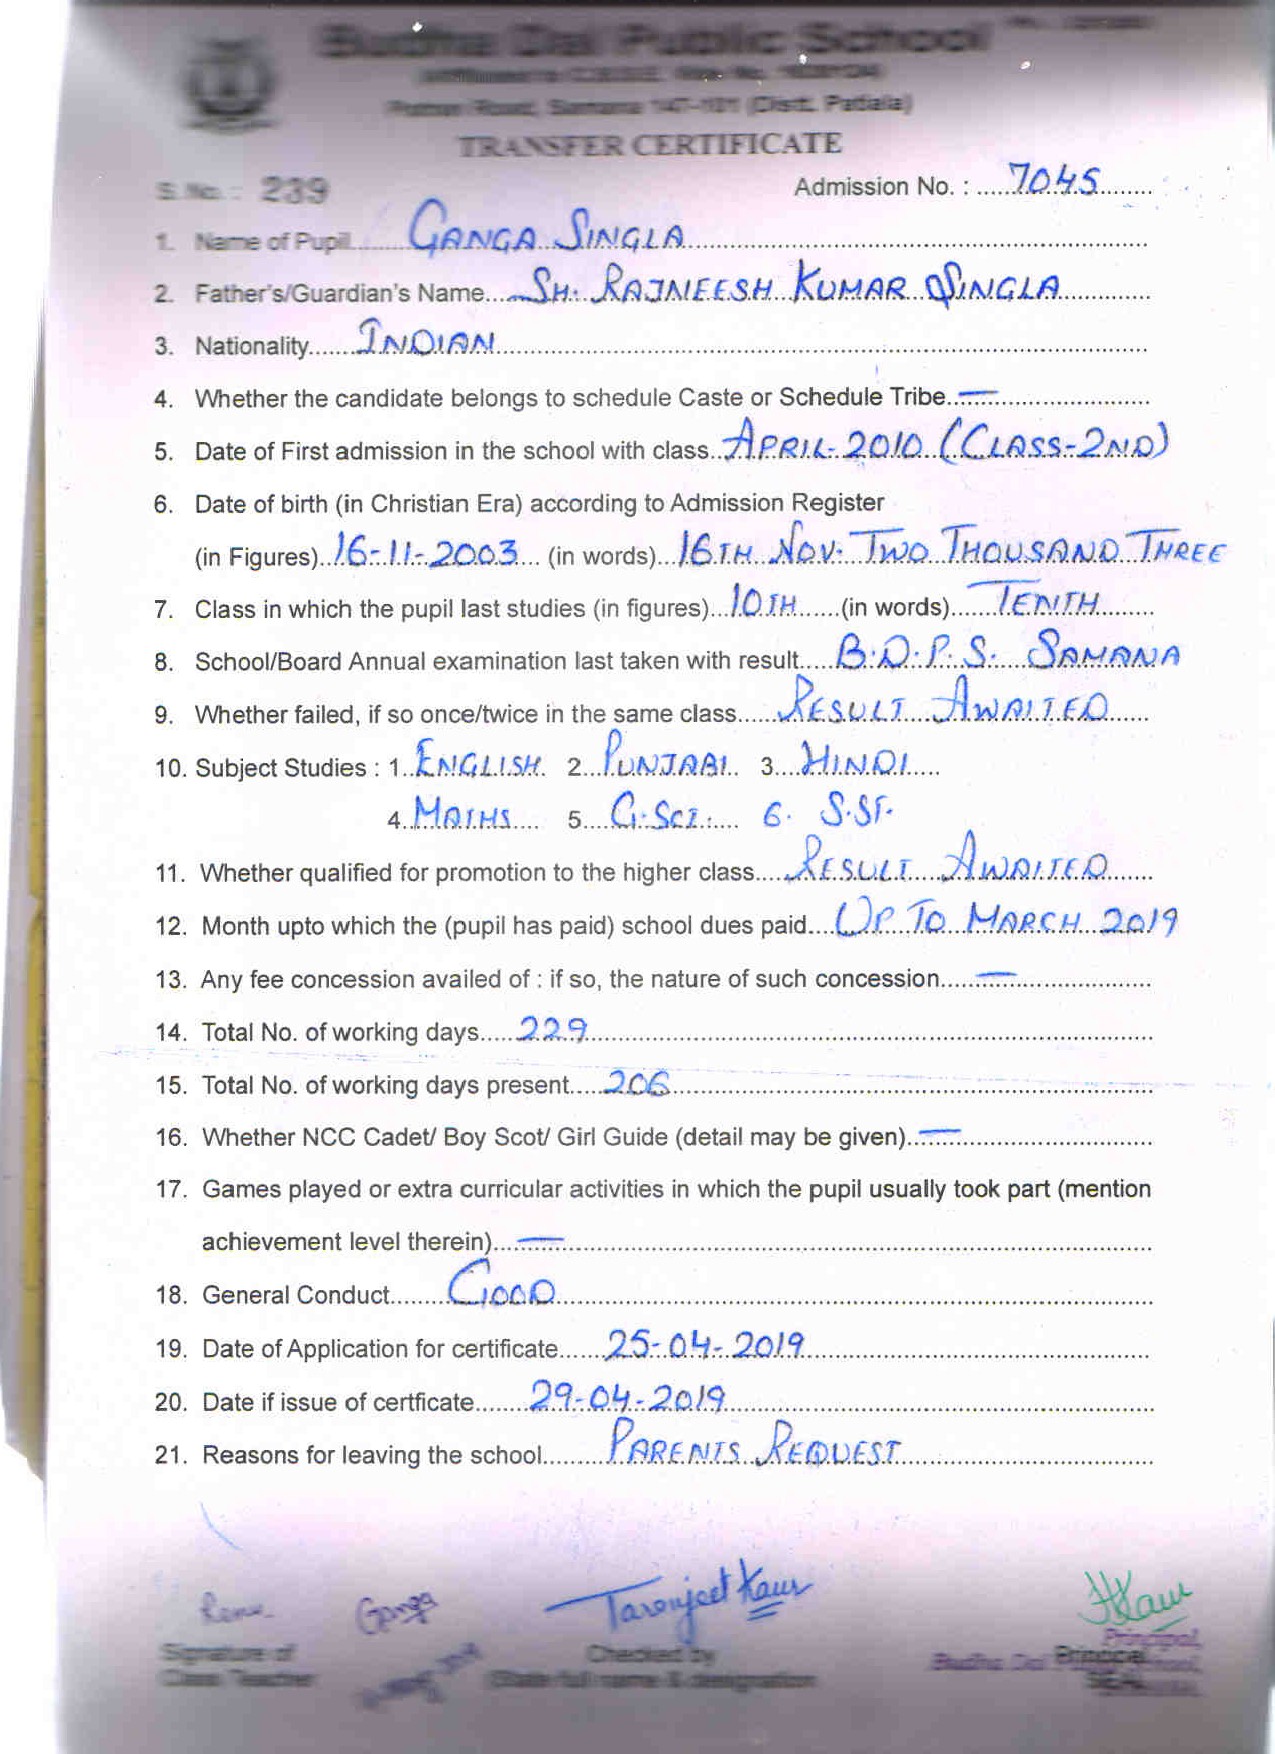 Budha Dal Public School
Patran Road, Samana 147-101 (Distt. Patiala)
TRANSFER CERTIFICATE
S. No. : 239 Admission No. : 7045
1. Name of Pupil GANGA SINGLA
2. Father's/Guardian's Name SH. RAJNEESH KUMAR SINGLA
3. Nationality INDIAN
4. Whether the candidate belongs to schedule Caste or Schedule Tribe —
5. Date of First admission in the school with class APRIL-2010 (CLASS-2ND)
6. Date of birth (in Christian Era) according to Admission Register
(in Figures) 16-11-2003 (in words) 16TH NOV. TWO THOUSAND THREE
7. Class in which the pupil last studies (in figures) 10TH (in words) TENTH
8. School/Board Annual examination last taken with result B.D.P.S. SAMANA
9. Whether failed, if so once/twice in the same class RESULT AWAITED
10. Subject Studies : 1. ENGLISH 2. PUNJABI 3. HINDI
4. MATHS 5. G.SCI. 6. S.ST.
11. Whether qualified for promotion to the higher class RESULT AWAITED
12. Month upto which the (pupil has paid) school dues paid UP TO MARCH 2019
13. Any fee concession availed of : if so, the nature of such concession —
14. Total No. of working days 229
15. Total No. of working days present 206
16. Whether NCC Cadet/ Boy Scot/ Girl Guide (detail may be given) —
17. Games played or extra curricular activities in which the pupil usually took part (mention
achievement level therein) —
18. General Conduct GOOD
19. Date of Application for certificate 25-04-2019
20. Date if issue of certficate 29-04-2019
21. Reasons for leaving the school PARENTS REQUEST
Renu Ganga Taronjeet Kaur HKaur
Signature of Checked by Principal
Class Teacher (State full name & designation)